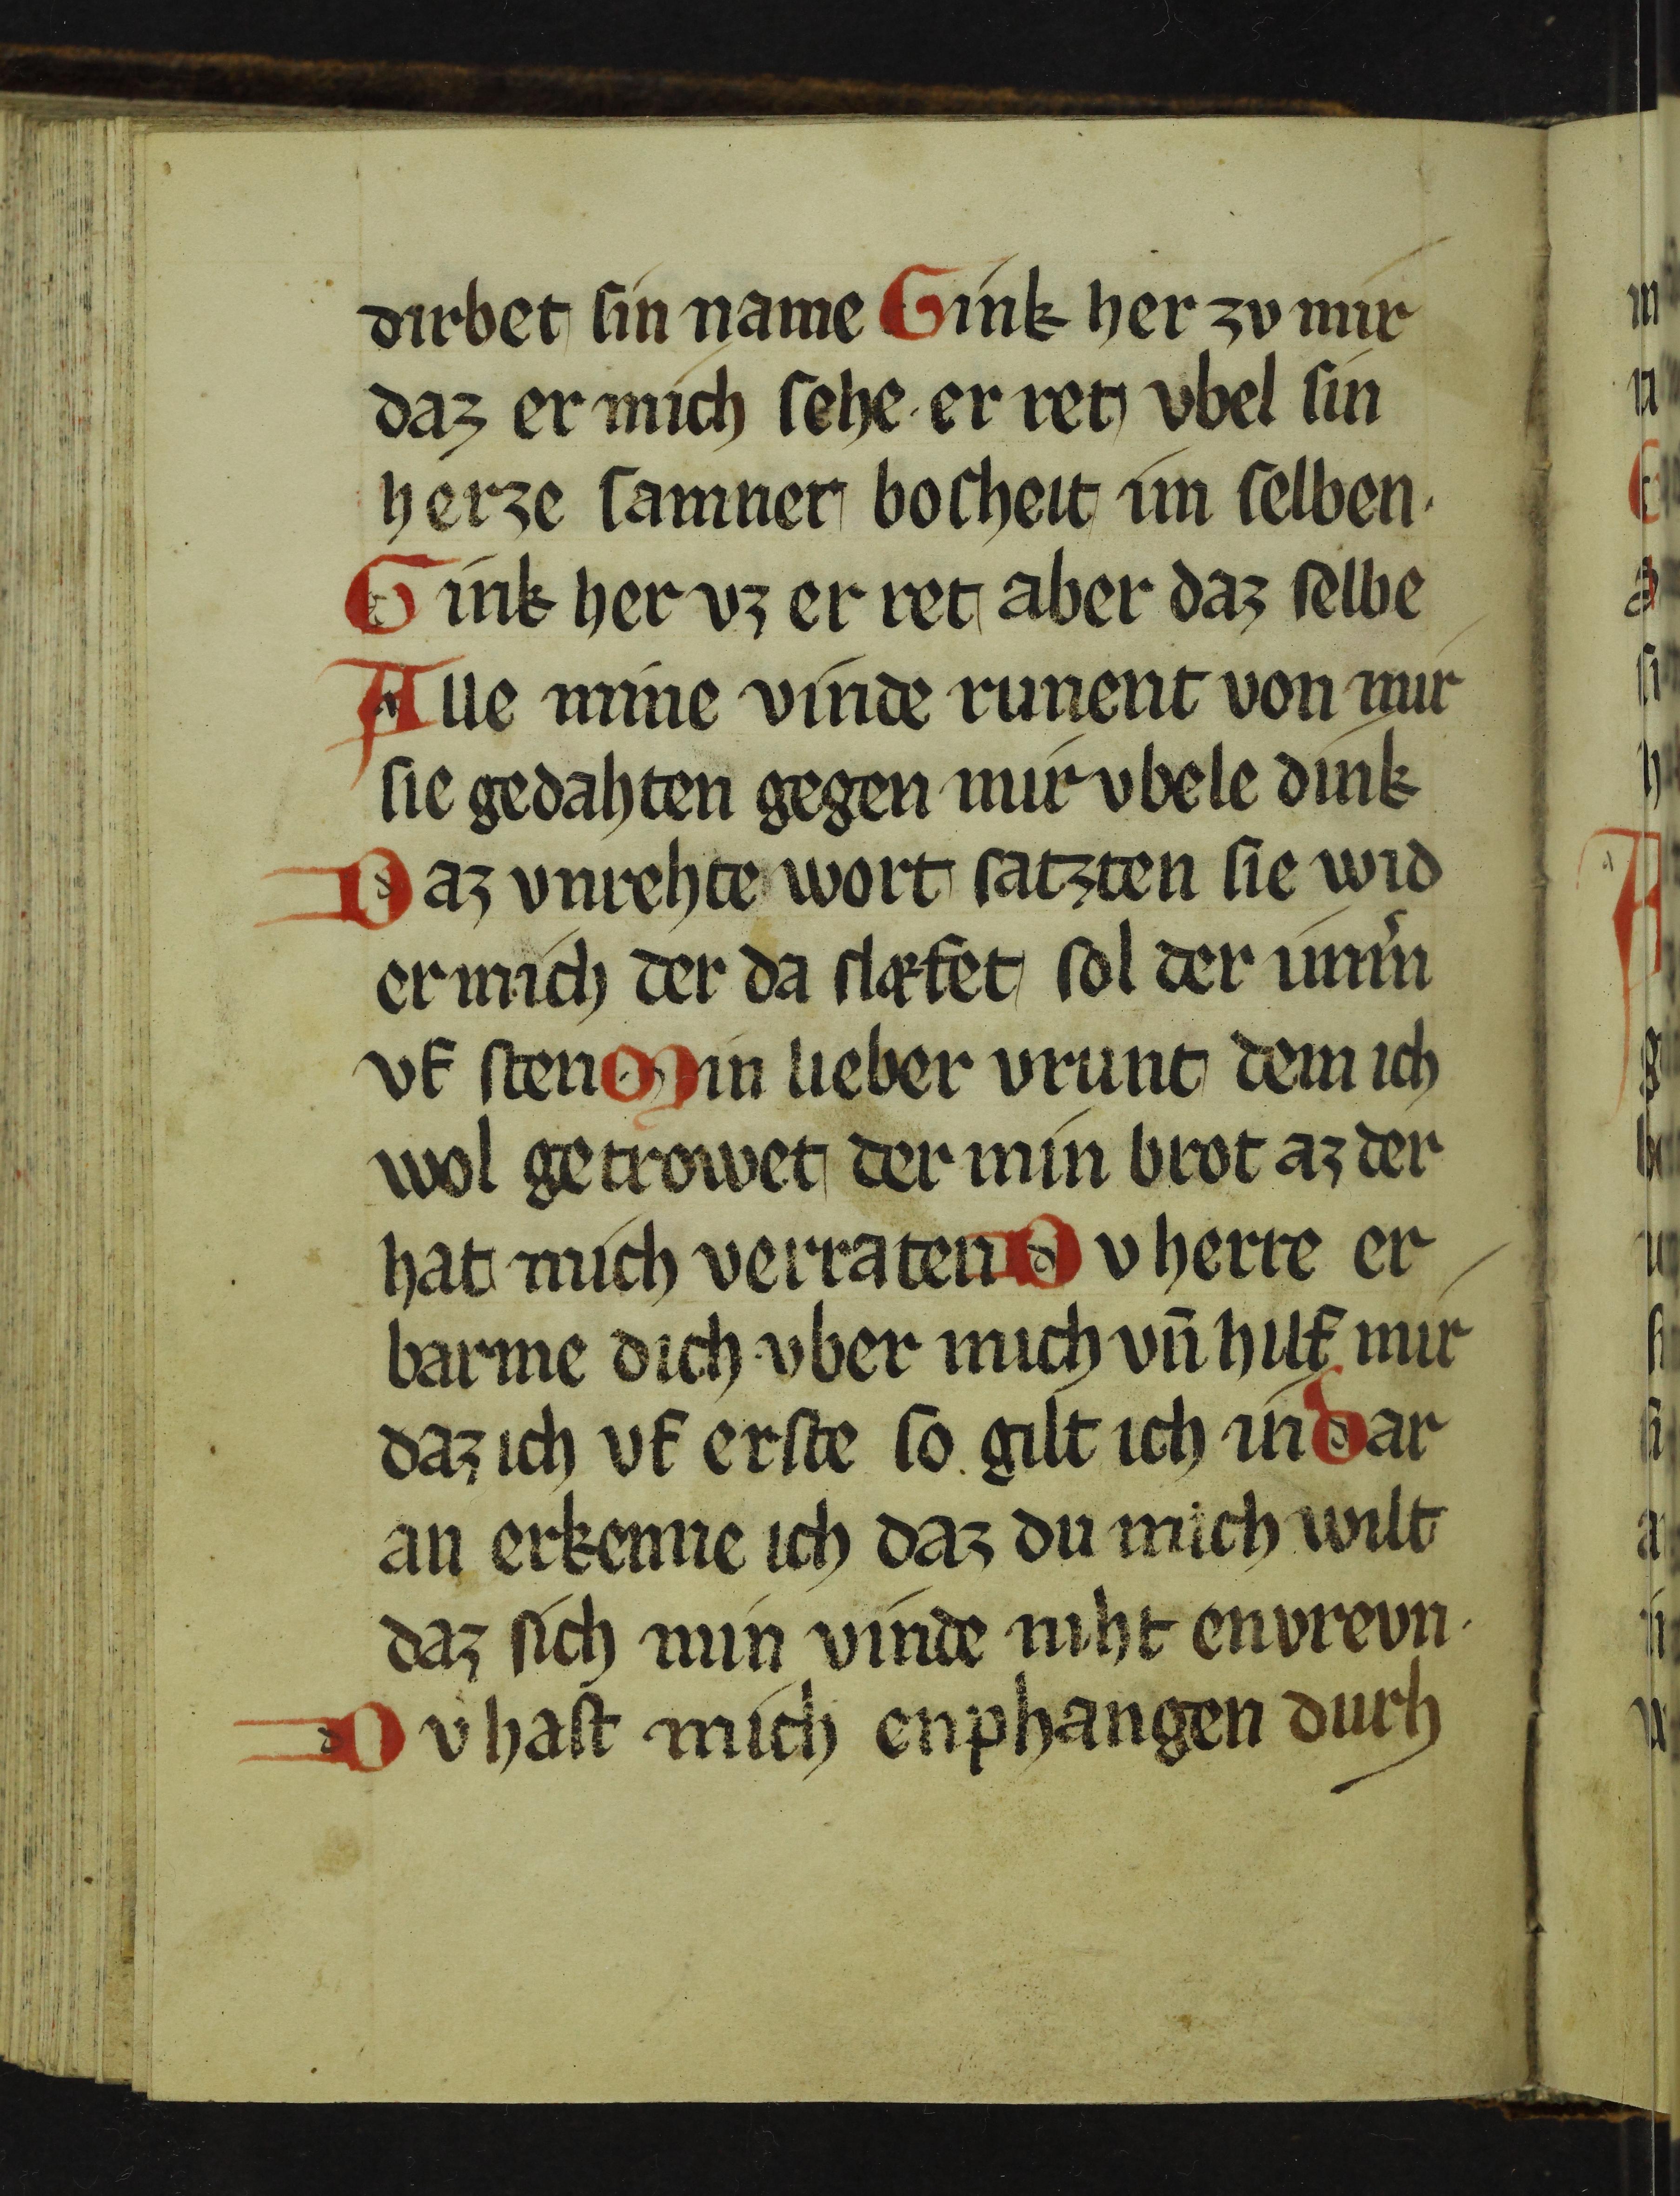 dirbet sin name Gink her zv mir
daz er mich sehe · er ret vbel sin
herze samnet bosheit im selben ·
Gink her vz er ret aber daz selbe
Alle mine vinde runent von mir
sie gedahten gegen mir vbele dink
Daz vnrehte wort satzten sie wid
er mich der da slæfet sol der imm̃
vf sten Min lieber vrunt dem ich
wol getrowet der min brot az der
hat mich verraten Dv herre er
barme dich vber mich vn̄ hilf mir
daz ich vf erste so gilt ich in dar
an erkenne ich daz du mich wilt
daz sich min vinde niht envrevn ·
Dv hast mich enphangen durh